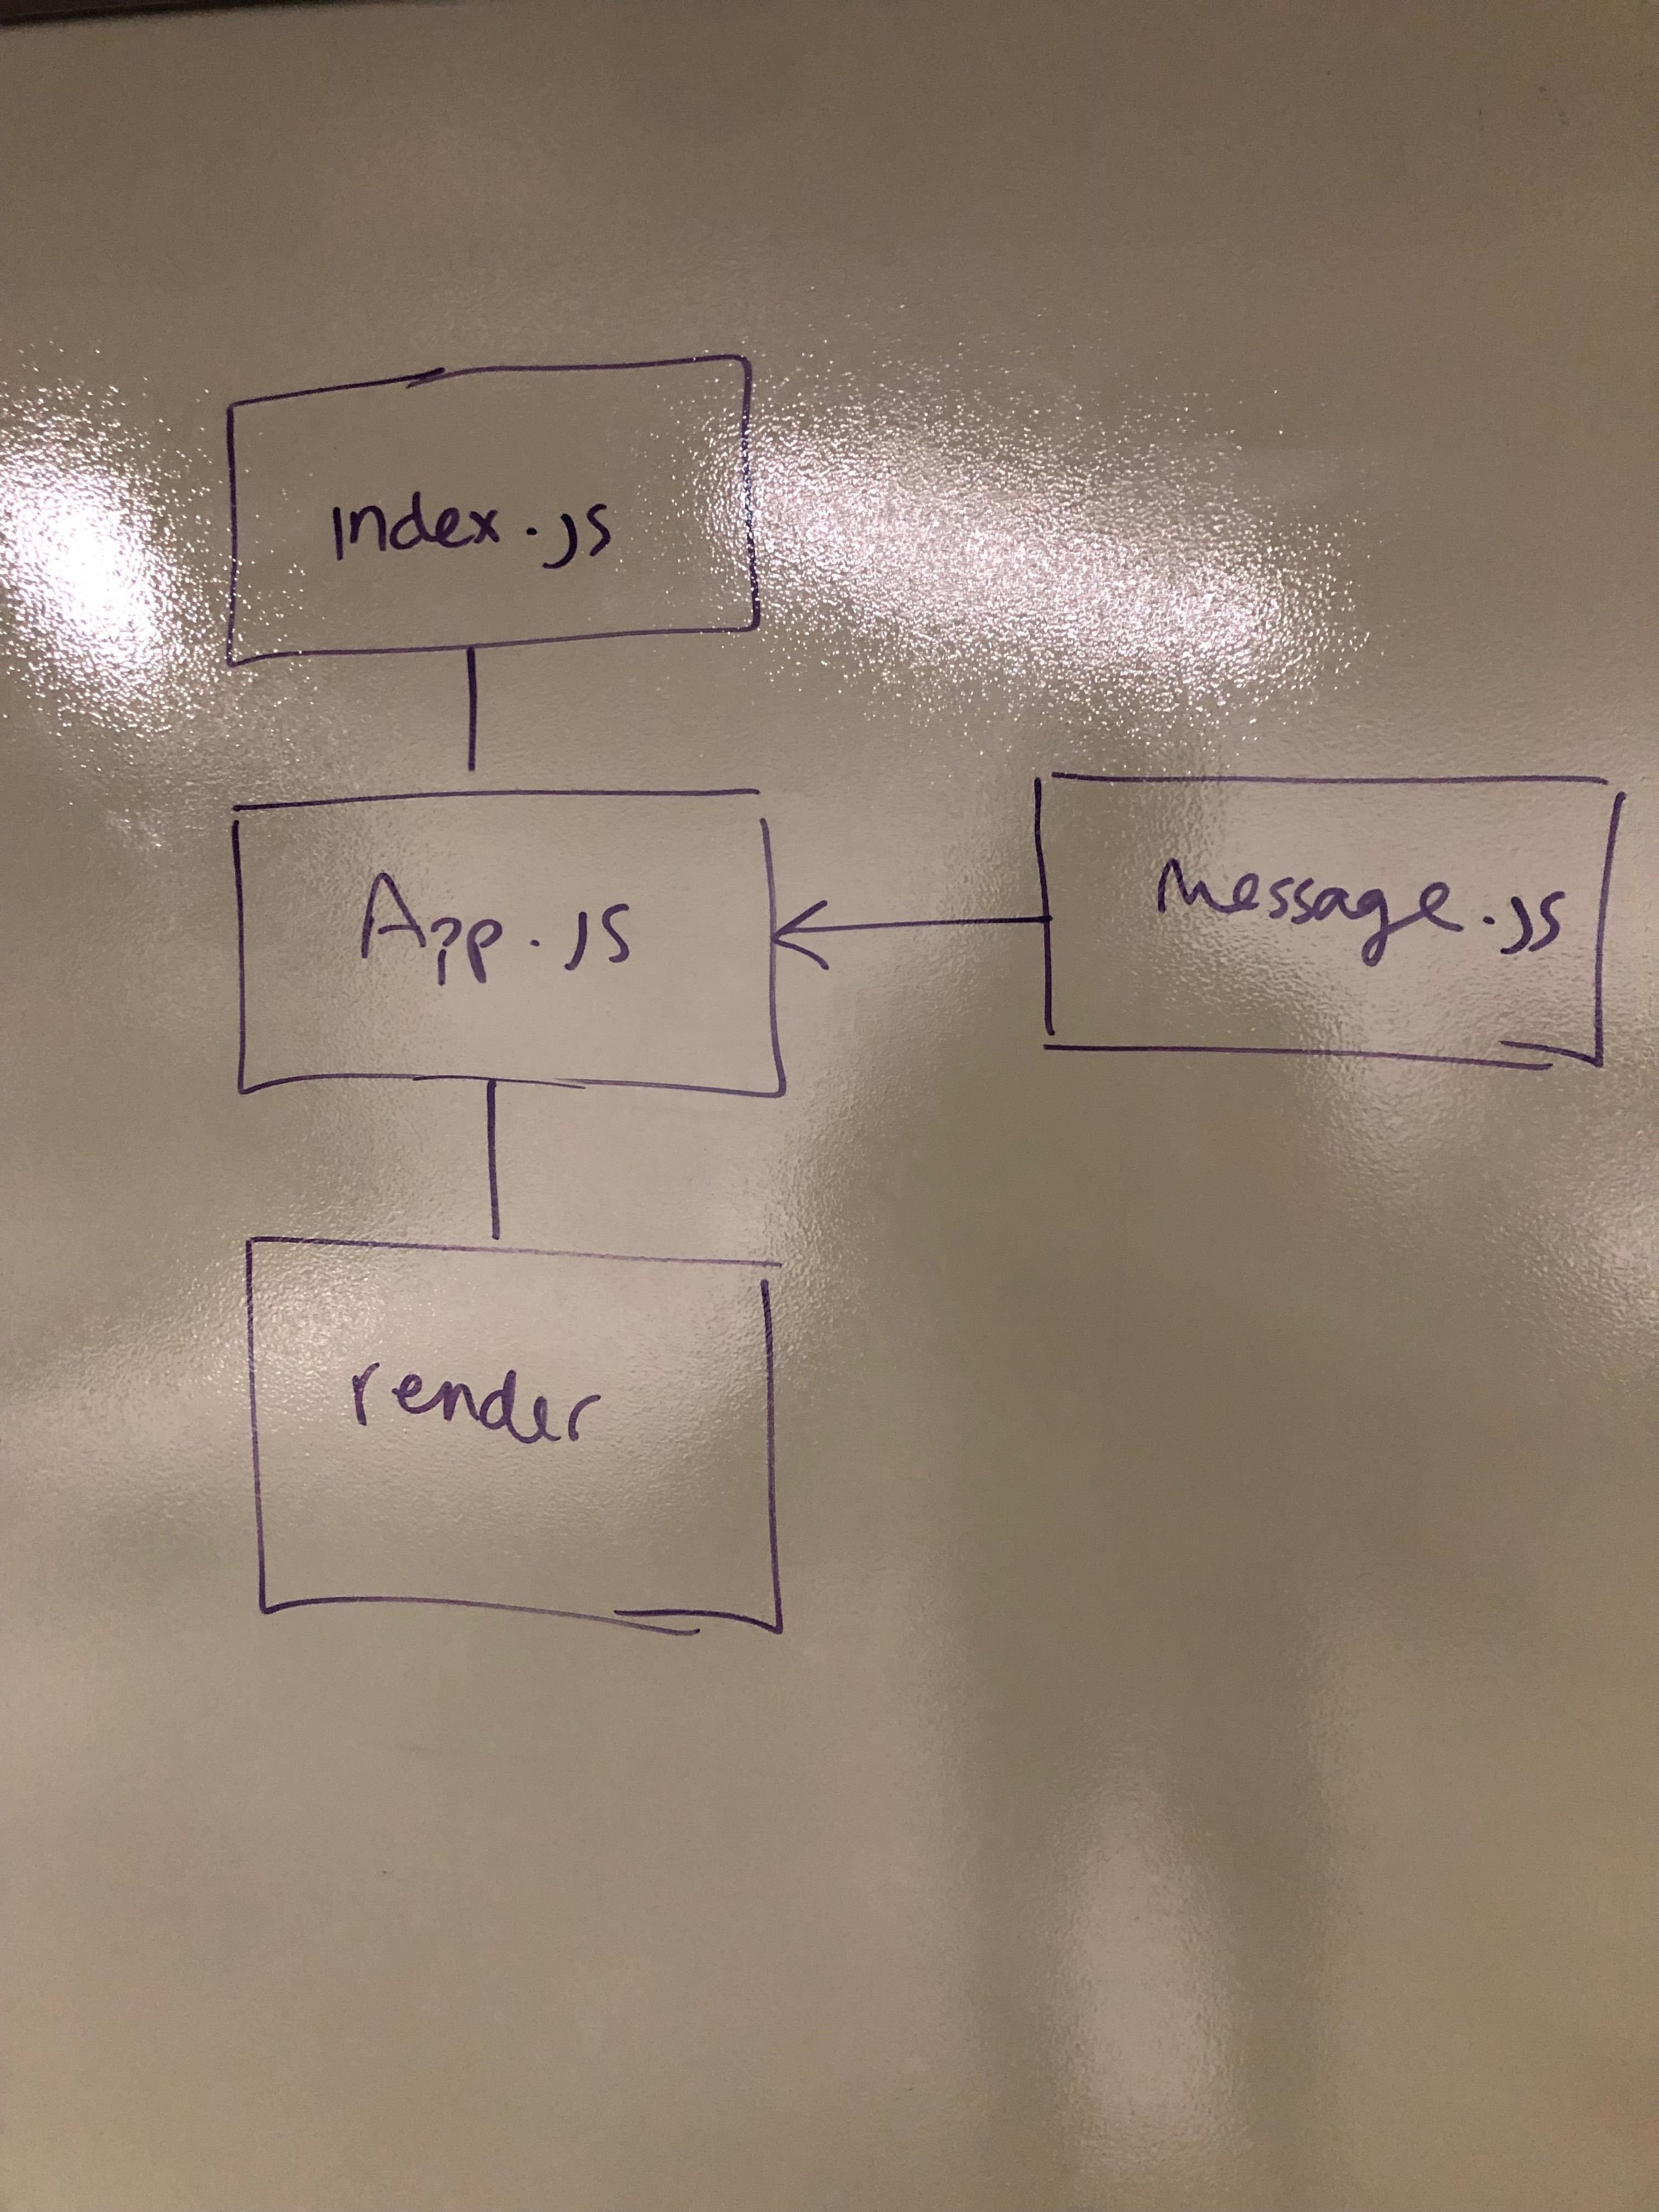 index.js
App.js
Message.js
render